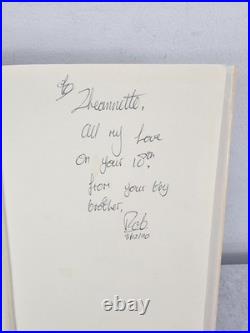 To
Zheannette,
All my love
On your 18th
from your big
brother,
Rob